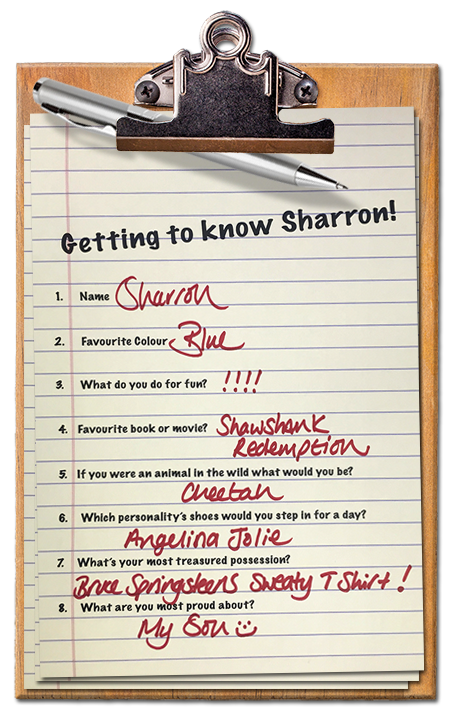 Getting to know Sharron!
1. Name Sharron
2. Favourite Colour Blue
3. What do you do for fun? !!!!
4. Favourite book or movie? Shawshank
Redemption
5. If you were an animal in the wild what would you be?
Cheetah
6. Which personality's shoes would you step in for a day?
Angelina Jolie
7. What's your most treasured possession?
Bruce Springsteens Sweaty T Shirt!
8. What are you most proud about?
My Son :)